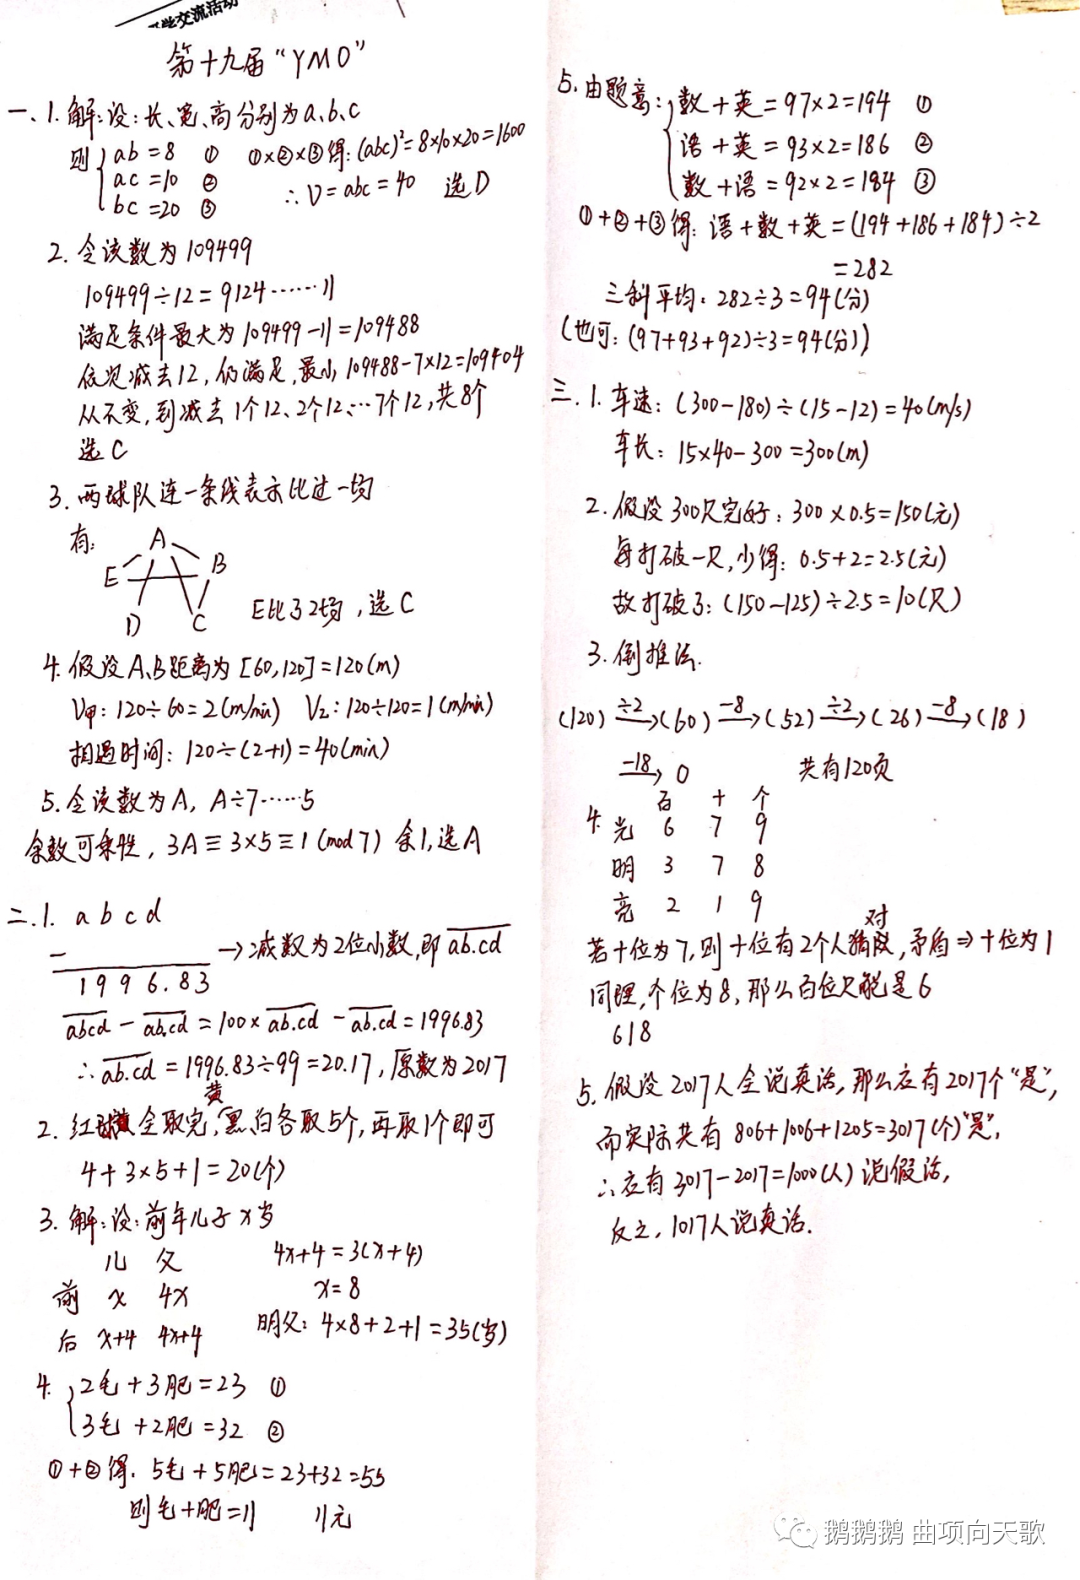 学交流活动
第十九届“YMO”
一、1.解:设:长、宽、高分别为a、b、c
则 ab=8 ① ①×②×③得:(abc)²=8×10×20=1600
ac=10 ②
bc=20 ③
∴V=abc=40 选D
2.令该数为109499
109499÷12=9124……11
满足条件最大为109499-11=109488
依次减去12,仍满足,最小109488-7×12=109404
从不变,到减去1个12、2个12…7个12,共8个
选C
3.两球队连一条线表示比过一场
有:
A
E B
D C
E比了2场,选C
4.假设A、B距离为[60,120]=120(m)
V甲:120÷60=2(m/min) V乙:120÷120=1(m/min)
相遇时间:120÷(2+1)=40(min)
5.令该数为A, A÷7……5
余数可乘性, 3A≡3×5≡1(mod7) 余1,选A
二.1. a b c d
-
1996.83
→减数为2位小数,即ab.cd
abcd-ab.cd=100×ab.cd-ab.cd=1996.83
∴ab.cd=1996.83÷99=20.17,原数为2017
2.红全取完,黄黑、白各取5个,再取1个即可
4+3×5+1=20(个)
3.解:设:前年儿子x岁
儿 父
前 x 4x
后 x+4 4x+4
4x+4=3(x+4)
x=8
明父:4×8+2+1=35(岁)
4. 2毛+3肥=23 ①
3毛+2肥=32 ②
①+②得. 5毛+5肥=23+32=55
则毛+肥=11 11元
5.由题意: 数+英=97×2=194 ①
语+英=93×2=186 ②
数+语=92×2=184 ③
①+②+③得:语+数+英=(194+186+184)÷2
=282
三科平均:282÷3=94(分)
(也可:(97+93+92)÷3=94(分))
三.1.车速:(300-180)÷(15-12)=40(m/s)
车长:15×40-300=300(m)
2.假设300只完好:300×0.5=150(元)
每打破一只,少得:0.5+2=2.5(元)
故打破了:(150-125)÷2.5=10(只)
3.倒推法.
(120)÷2→(60)-8→(52)÷2→(26)-8→(18)
-18→0 共有120页
百 十 个
4.光 6 7 9
明 3 7 8
亮 2 1 9
若十位为7,则十位有2个人猜对,矛盾⇒十位为1
同理,个位为8,那么百位只能是6
618
5.假设2017人全说真话,那么应有2017个“是”,
而实际共有806+1006+1205=3017(个)“是”,
∴应有3017-2017=1000(人)说假话,
反之,1017人说真话.
鹅鹅鹅 曲项向天歌